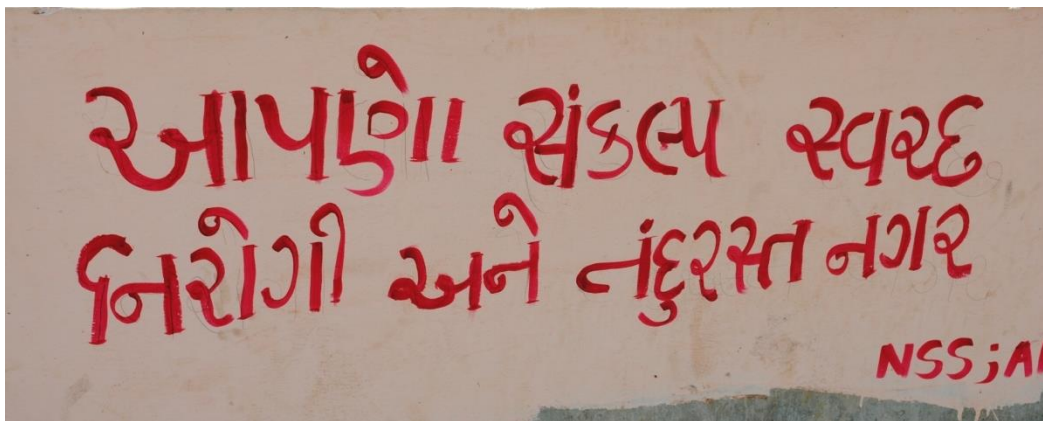 આપણો સંકલ્પ સ્વચ્છ
નિરોગી અને તંદુરસ્ત નગર
NSS;A